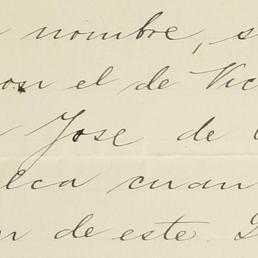 nombre, s
con el de Vic
Jose de
lca cuan
de este